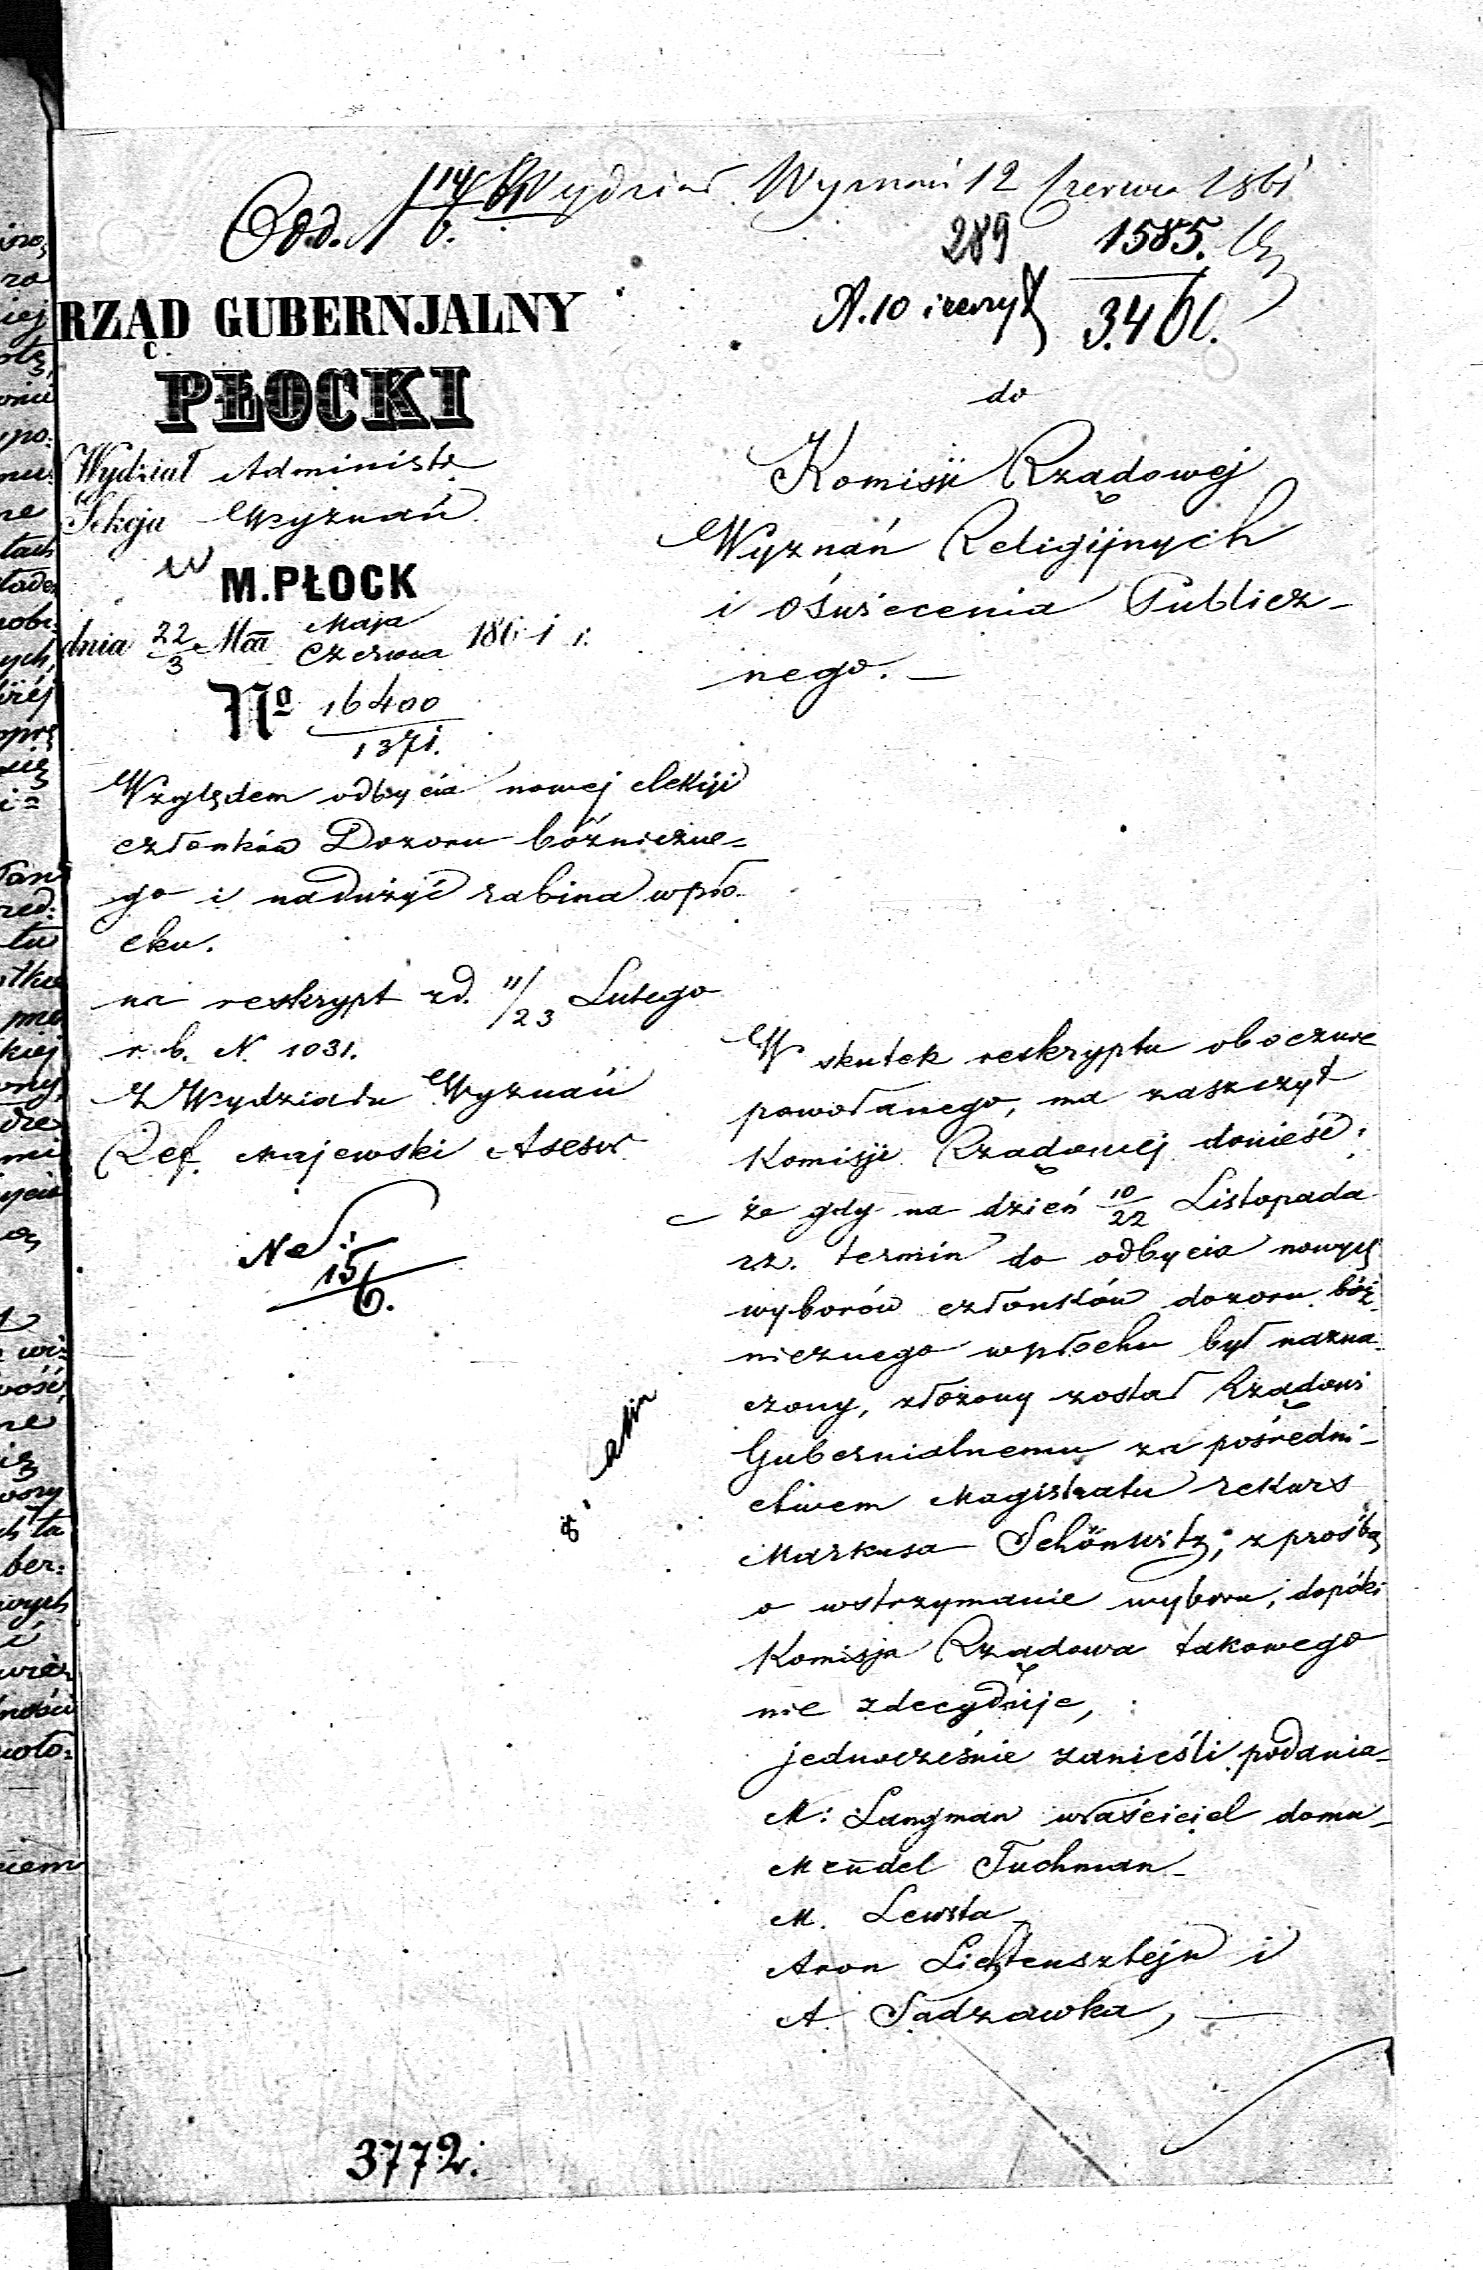 Wydział Wyznań 12 Czerwca 1861
Odd. 14/6.
289 1585.
3.460.
RZĄD GUBERNJALNY
PŁOCKI
Wydział Administr.
Sekcja Wyznań
w M. PŁOCK
dnia 22/3 Mca Maja/Czerwca 1861 r.
No 16400/1371.
Względem odbycia nowej elekcji
członków Dozoru bóżniczne-
go i nadużyć rabina w Pło-
cku.
na reskrypt z d. 11/23 Lutego
r. b. N. 1031.
Z Wydziału Wyznań
Ref. Majewski Asesor
15/6.
do
Komisji Rządowej
Wyznań Religijnych
i Oświecenia Publicz-
nego. —
W skutek reskryptu obocznie
powołanego, ma zaszczyt
Komisji Rządowej donieść:
że gdy na dzień 10/22 Listopada
r.z. termin do odbycia nowych
wyborów członków dozoru bóż-
nicznego w Płocku był nazna-
czony, złożony został Rządowi
Gubernialnemu za pośredni-
ctwem Magistratu rekurs
Markusa Schönwitz, z prośbą
o wstrzymanie wyboru, dopóki
Komisja Rządowa takowego
nie zdecyduje,
jednocześnie zanieśli podania
M: Lungman właściciel domu
Mendel Tuchman
M. Lewita
Aron Lichtensztejn i
A. Sadzawka, —
3772.